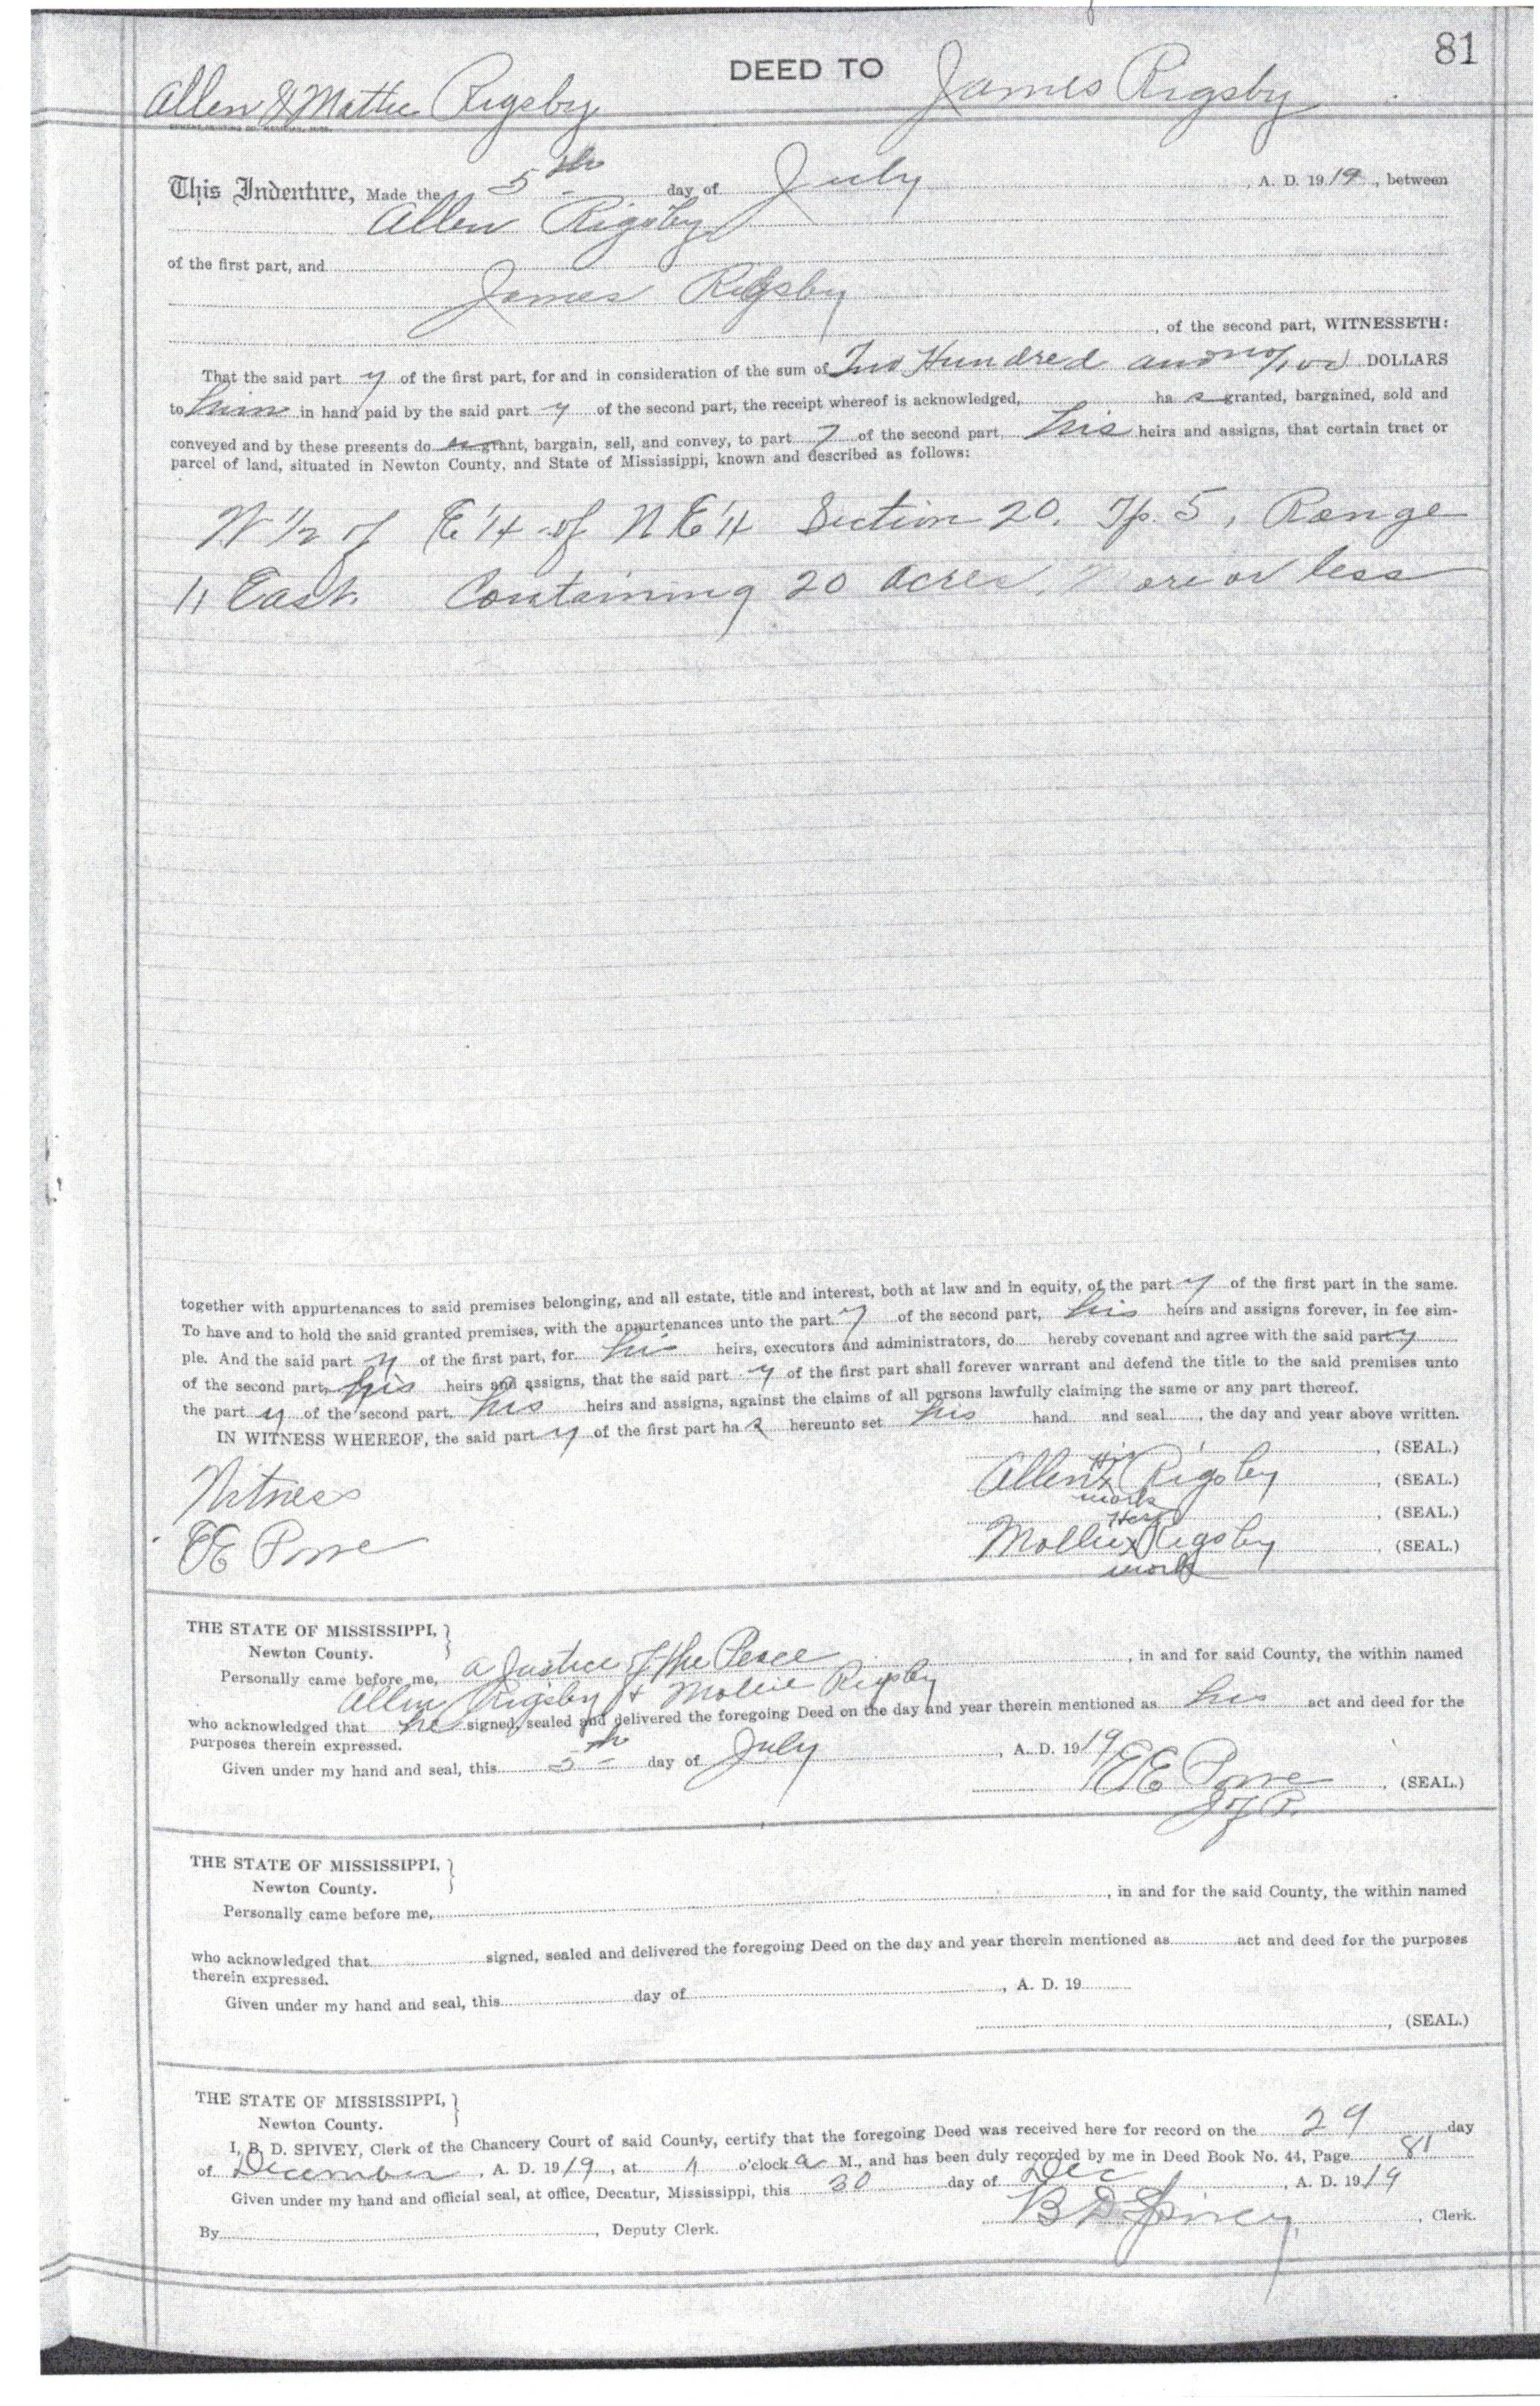 81
DEED TO
Allen & Mattie Rigsby
James Rigsby
This Indenture, Made the 5th day of July, A. D. 1919, between
Allen Rigsby
of the first part, and
James Rigsby
, of the second part, WITNESSETH:
That the said part y of the first part, for and in consideration of the sum of Two Hundred and no/100 DOLLARS
to him in hand paid by the said part y of the second part, the receipt whereof is acknowledged, ha s granted, bargained, sold and
conveyed and by these presents do grant, bargain, sell, and convey, to part y of the second part, his heirs and assigns, that certain tract or
parcel of land, situated in Newton County, and State of Mississippi, known and described as follows:
W 1/2 of E 1/4 of N E 1/4 Section 20. Tp. 5, Range
11 East. Containing 20 acres. More or less
together with appurtenances to said premises belonging, and all estate, title and interest, both at law and in equity, of the part y of the first part in the same.
To have and to hold the said granted premises, with the appurtenances unto the part y of the second part, his heirs and assigns forever, in fee sim-
ple. And the said part y of the first part, for his heirs, executors and administrators, do hereby covenant and agree with the said party
of the second part, his heirs and assigns, that the said part y of the first part shall forever warrant and defend the title to the said premises unto
the part y of the second part, his heirs and assigns, against the claims of all persons lawfully claiming the same or any part thereof.
IN WITNESS WHEREOF, the said part y of the first part ha s hereunto set his hand and seal, the day and year above written.
, (SEAL.)
His
Witness Allen x Rigsby, (SEAL.)
mark
, (SEAL.)
Her
E E Pore Mollie x Rigsby, (SEAL.)
mark
THE STATE OF MISSISSIPPI,
Newton County.
Personally came before me, a Justice of the Peace, in and for said County, the within named
Allen Rigsby & Mollie Rigsby
who acknowledged that he signed, sealed and delivered the foregoing Deed on the day and year therein mentioned as his act and deed for the
purposes therein expressed.
Given under my hand and seal, this 5th day of July, A. D. 1919
E E Pore, (SEAL.)
J of P.
THE STATE OF MISSISSIPPI,
Newton County.
Personally came before me, , in and for the said County, the within named
who acknowledged that signed, sealed and delivered the foregoing Deed on the day and year therein mentioned as act and deed for the purposes
therein expressed.
Given under my hand and seal, this day of , A. D. 19
, (SEAL.)
THE STATE OF MISSISSIPPI,
Newton County.
I, B. D. SPIVEY, Clerk of the Chancery Court of said County, certify that the foregoing Deed was received here for record on the 29 day
of December, A. D. 1919, at o'clock a M., and has been duly recorded by me in Deed Book No. 44, Page 81
Given under my hand and official seal, at office, Decatur, Mississippi, this 30 day of Dec, A. D. 1919
B D Spivey, Clerk.
By , Deputy Clerk.